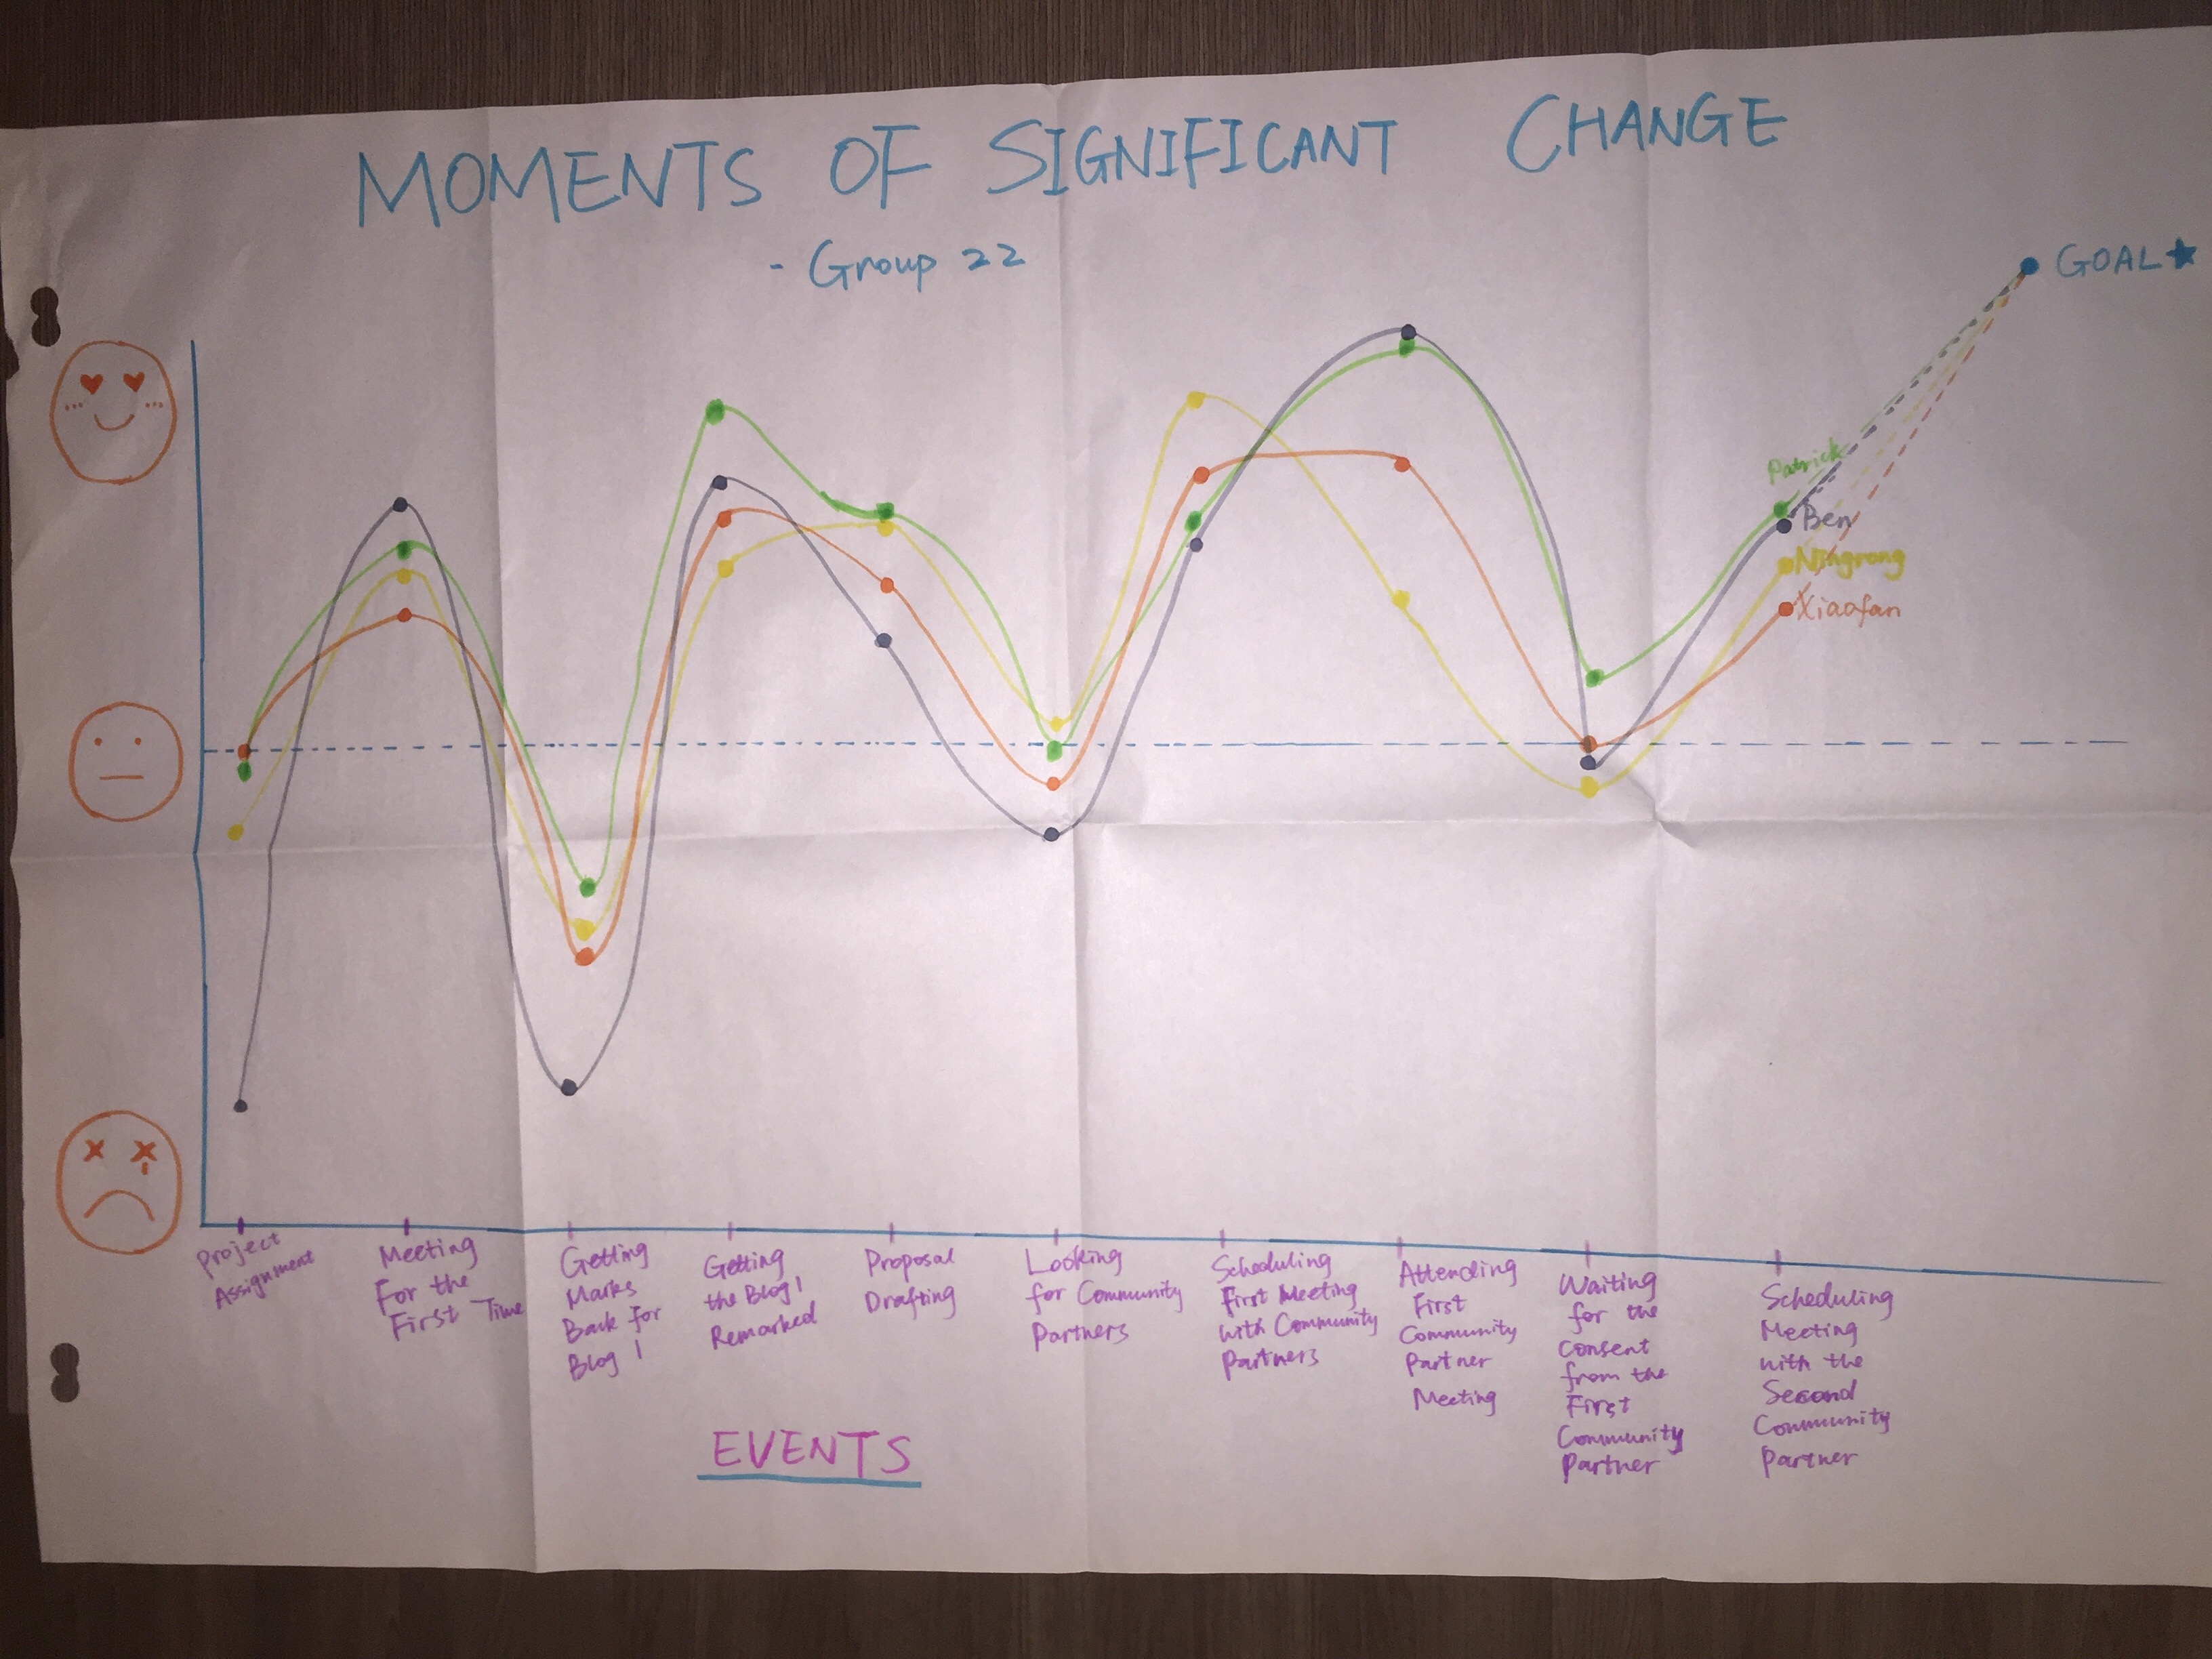 MOMENTS OF SIGNIFICANT CHANGE
- Group 22
GOAL
Patrick
Ben
Ningrong
Xiaofan
Project
Assignment
Meeting
For the
First Time
Getting
Marks
Back For
Blog 1
Getting
the Blog 1
Remarked
Proposal
Drafting
Looking
for Community
Partners
Scheduling
First Meeting
with Community
Partners
Attending
First
Community
Partner
Meeting
Waiting
for the
consent
from the
First
Community
Partner
Scheduling
Meeting
with the
Second
Community
Partner
EVENTS